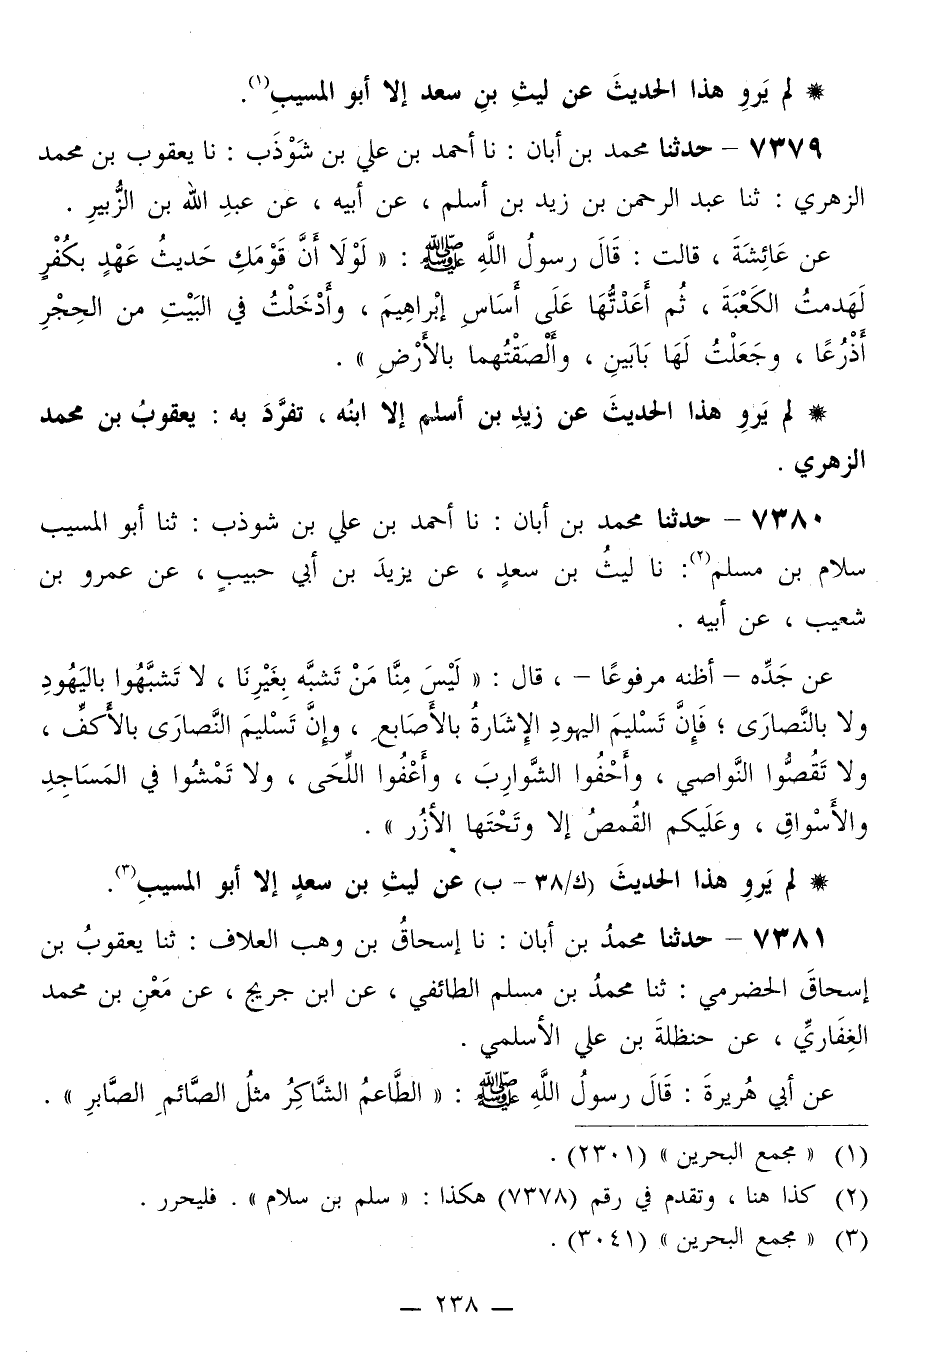 * لم يَروِ هذا الحديثَ عن ليثِ بنِ سعد إلا أبو المسيبِ(١).
٧٣٧٩ – حدثنا محمد بن أبان : نا أحمد بن علي بن شَوْذَب : نا يعقوب بن محمد
الزهري : ثنا عبد الرحمن بن زيد بن أسلم ، عن أبيه ، عن عبدِ الله بن الزُّبيرِ .
عن عَائِشَةَ ، قالت : قَالَ رسولُ اللَّهِ ﷺ : « لَوْلَا أَنَّ قَوْمَكِ حَديثُ عَهْدٍ بكُفْرٍ
لَهَدمتُ الكَعْبَةَ ، ثُم أَعَدْتُّهَا عَلَى أَسَاسِ إبْراهِيمَ ، وأَدْخَلْتُ في البَيْتِ من الحِجْرِ
أَذْرُعًا ، وجَعَلْتُ لَهَا بَابَينِ ، وأَلْصَقْتُهما بالأَرْضِ » .
* لم يَروِ هذا الحديثَ عن زيدِ بن أسلم إلا ابنُه ، تفرَّدَ به : يعقوبُ بن محمد
الزهري .
٧٣٨٠ – حدثنا محمد بن أبان : نا أحمد بن علي بن شوذب : ثنا أبو المسيب
سلام بن مسلم(٢): نا ليثُ بن سعدٍ ، عن يزيدَ بن أبي حبيبٍ ، عن عمرو بن
شعيب ، عن أبيه .
عن جَدِّه – أظنه مرفوعًا – ، قال : « لَيْسَ مِنَّا مَنْ تَشبَّه بِغَيْرِنَا ، لا تَشبَّهُوا باليَهُودِ
ولا بالنَّصارَى ؛ فَإِنَّ تَسْليمَ اليهودِ الإِشارةُ بالأَصَابعِ ، وإِنَّ تَسْليمَ النَّصارَى بالأَكفِّ ،
ولا تَقُصُّوا النَّواصي ، وأَحْفُوا الشَّوارِبَ ، وأَعْفُوا اللِّحَى ، ولا تَمْشُوا في المَسَاجِدِ
والأَسْواقِ ، وعَلَيكم القُمصُ إلا وتَحْتَها الأزُر » .
* لم يَروِ هذا الحديثَ (ك/٣٨ – ب) عن ليثِ بن سعدٍ إلا أبو المسيبِ(٣).
٧٣٨١ – حدثنا محمدُ بن أبان : نا إسحاقُ بن وهب العلاف : ثنا يعقوبُ بن
إسحاقَ الحضرمي : ثنا محمدُ بن مسلم الطائفي ، عن ابن جريج ، عن مَعْنِ بن محمد
الغِفَاريِّ ، عن حنظلةَ بن علي الأسلمي .
عن أبي هُريرةَ : قَالَ رسولُ اللَّهِ ﷺ : « الطَّاعمُ الشَّاكِرُ مثلُ الصَّائمِ الصَّابرِ » .
(١) « مجمع البحرين » (٢٣٠١) .
(٢) كذا هنا ، وتقدم في رقم (٧٣٧٨) هكذا : « سلم بن سلام » . فليحرر .
(٣) « مجمع البحرين » (٣٠٤١) .
— ٢٣٨ —